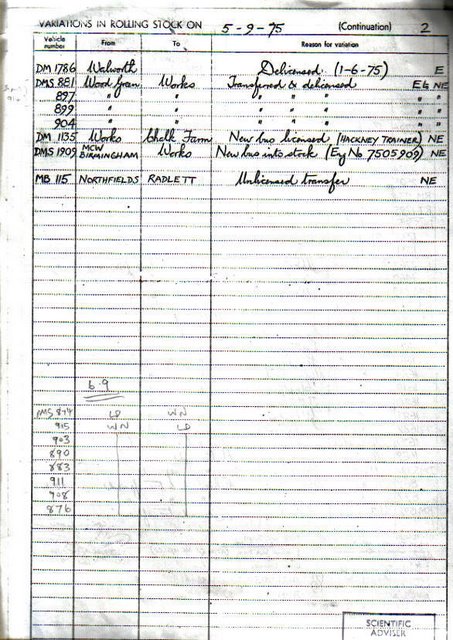 VARIATIONS IN ROLLING STOCK ON 5-9-75 (Continuation) 2
Vehicle number From To Reason for variation
DM 1786 Walworth Delicensed. (1-6-75) E
DMS 881 Wood Green Works Transferred & delicensed NE
897 " " " " " " "
899 " " " " " " "
904 " " " " " " "
DM 1135 Works Chalk Farm New bus licensed (HACKNEY TRAINER) NE
DMS 1909 MCW BIRMINGHAM Works New bus into stock (Eng No 7505909) NE
MB 115 NORTHFIELDS RADLETT Unlicensed transfer NE
6.9
DMS 874 LD WN
915 WN LD
903
890
883
911
908
876
SCIENTIFIC
ADVISER